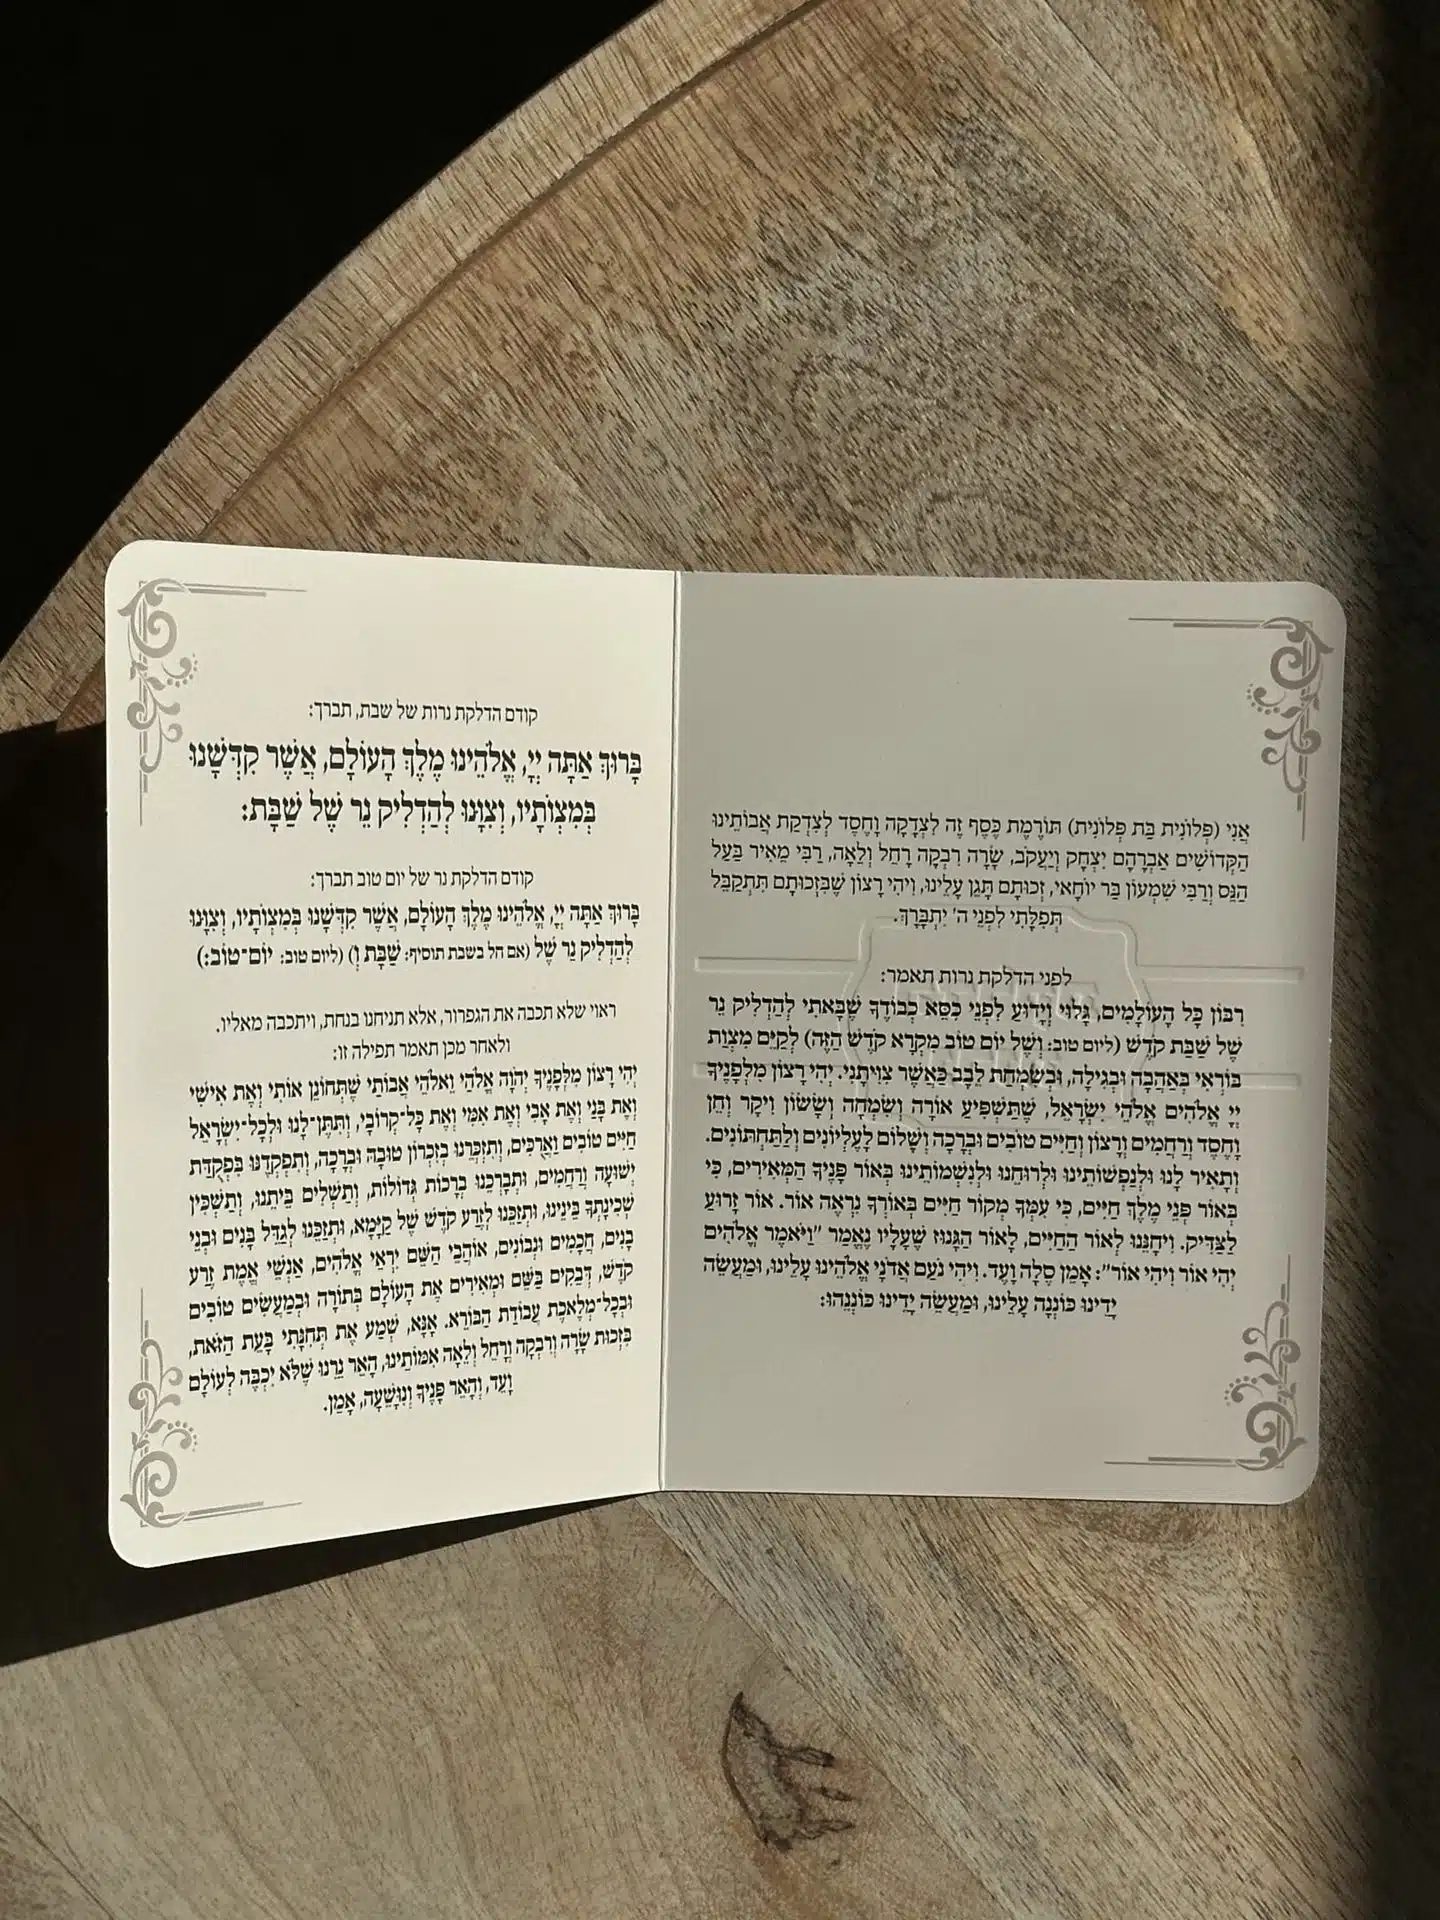 אֲנִי (פְּלוֹנִית בַּת פְּלוֹנִית) תּוֹרֶמֶת כֶּסֶף זֶה לִצְדָקָה וָחֶסֶד לְצִדְקַת אֲבוֹתֵינוּ
הַקְּדוֹשִׁים אַבְרָהָם יִצְחָק וְיַעֲקֹב, שָׂרָה רִבְקָה רָחֵל וְלֵאָה, רַבִּי מֵאִיר בַּעַל
הַנֵּס וְרַבִּי שִׁמְעוֹן בַּר יוֹחָאִי, זְכוּתָם תָּגֵן עָלֵינוּ, וִיהִי רָצוֹן שֶׁבִּזְכוּתָם תִּתְקַבֵּל
תְּפִלָּתִי לִפְנֵי ה' יִתְבָּרַךְ.
לפני הדלקת נרות תאמר:
רִבּוֹן כָּל הָעוֹלָמִים, גָּלוּי וְיָדוּעַ לִפְנֵי כִּסֵּא כְבוֹדֶךָ שֶׁבָּאתִי לְהַדְלִיק נֵר
שֶׁל שַׁבַּת קֹדֶשׁ (ליום טוב: וְשֶׁל יוֹם טוֹב מִקְרָא קֹדֶשׁ הַזֶּה) לְקַיֵּם מִצְוַת
בּוֹרְאִי בְּאַהֲבָה וּבְגִילָה, וּבְשִׂמְחַת לֵבָב כַּאֲשֶׁר צִוִּיתָנִי. יְהִי רָצוֹן מִלְּפָנֶיךָ
יְיָ אֱלֹהִים אֱלֹהֵי יִשְׂרָאֵל, שֶׁתַּשְׁפִּיעַ אוֹרָה וְשִׂמְחָה וְשָׂשׂוֹן וִיקָר וְחֵן
וָחֶסֶד וְרַחֲמִים וְרָצוֹן וְחַיִּים טוֹבִים וּבְרָכָה וְשָׁלוֹם לָעֶלְיוֹנִים וְלַתַּחְתּוֹנִים.
וְתָאִיר לָנוּ וּלְנַפְשׁוֹתֵינוּ וּלְרוּחֵנוּ וּלְנִשְׁמוֹתֵינוּ בְּאוֹר פָּנֶיךָ הַמְּאִירִים, כִּי
בְּאוֹר פְּנֵי מֶלֶךְ חַיִּים, כִּי עִמְּךָ מְקוֹר חַיִּים בְּאוֹרְךָ נִרְאֶה אוֹר. אוֹר זָרוּעַ
לַצַּדִּיק. וִיחָנֵּנוּ לְאוֹר הַחַיִּים, לָאוֹר הַגָּנוּז שֶׁעָלָיו נֶאֱמַר "וַיֹּאמֶר אֱלֹהִים
יְהִי אוֹר וַיְהִי אוֹר": אָמֵן סֶלָה וָעֶד. וִיהִי נֹעַם אֲדֹנָי אֱלֹהֵינוּ עָלֵינוּ, וּמַעֲשֵׂה
יָדֵינוּ כּוֹנְנָה עָלֵינוּ, וּמַעֲשֵׂה יָדֵינוּ כּוֹנְנֵהוּ:
קודם הדלקת נרות של שבת, תברך:
בָּרוּךְ אַתָּה יְיָ, אֱלֹהֵינוּ מֶלֶךְ הָעוֹלָם, אֲשֶׁר קִדְּשָׁנוּ
בְּמִצְוֹתָיו, וְצִוָּנוּ לְהַדְלִיק נֵר שֶׁל שַׁבָּת:
קודם הדלקת נר של יום טוב תברך:
בָּרוּךְ אַתָּה יְיָ, אֱלֹהֵינוּ מֶלֶךְ הָעוֹלָם, אֲשֶׁר קִדְּשָׁנוּ בְּמִצְוֹתָיו, וְצִוָּנוּ
לְהַדְלִיק נֵר שֶׁל (אם חל בשבת תוסיף: שַׁבָּת וְ) (ליום טוב: יוֹם־טוֹב:)
ראוי שלא תכבה את הגפרור, אלא תניחנו בנחת, ויתכבה מאליו.
ולאחר מכן תאמר תפילה זו:
יְהִי רָצוֹן מִלְּפָנֶיךָ יְהֹוָה אֱלֹהַי וֵאלֹהֵי אֲבוֹתַי שֶׁתְּחוֹנֵן אוֹתִי וְאֶת אִישִׁי
וְאֶת בָּנַי וְאֶת אָבִי וְאֶת אִמִּי וְאֶת כָּל־קְרוֹבַי, וְתִתֶּן־לָנוּ וּלְכָל־יִשְׂרָאֵל
חַיִּים טוֹבִים וַאֲרֻכִּים, וְתִזְכְּרֵנוּ בְּזִכְרוֹן טוֹבָה וּבְרָכָה, וְתִפְקְדֵנוּ בִּפְקֻדַּת
יְשׁוּעָה וְרַחֲמִים, וּתְבָרְכֵנוּ בְּרָכוֹת גְּדוֹלוֹת, וְתַשְׁלִים בֵּיתֵנוּ, וְתַשְׁכִּין
שְׁכִינָתְךָ בֵּינֵינוּ, וּתְזַכֵּנוּ לְזֶרַע קֹדֶשׁ שֶׁל קַיָּמָא, וּתְזַכֵּנוּ לְגַדֵּל בָּנִים וּבְנֵי
בָנִים, חֲכָמִים וּנְבוֹנִים, אוֹהֲבֵי הַשֵּׁם יִרְאֵי אֱלֹהִים, אַנְשֵׁי אֱמֶת זֶרַע
קֹדֶשׁ, דְּבֵקִים בַּשֵּׁם וּמְאִירִים אֶת הָעוֹלָם בְּתוֹרָה וּבְמַעֲשִׂים טוֹבִים
וּבְכָל־מְלֶאכֶת עֲבוֹדַת הַבּוֹרֵא. אָנָּא, שְׁמַע אֶת תְּחִנָּתִי בָּעֵת הַזֹּאת,
בִּזְכוּת שָׂרָה וְרִבְקָה וְרָחֵל וְלֵאָה אִמּוֹתֵינוּ, הָאֵר נֵרֵנוּ שֶׁלֹּא יִכְבֶּה לְעוֹלָם
וָעֶד, וְהָאֵר פָּנֶיךָ וְנִוָּשֵׁעָה, אָמֵן.